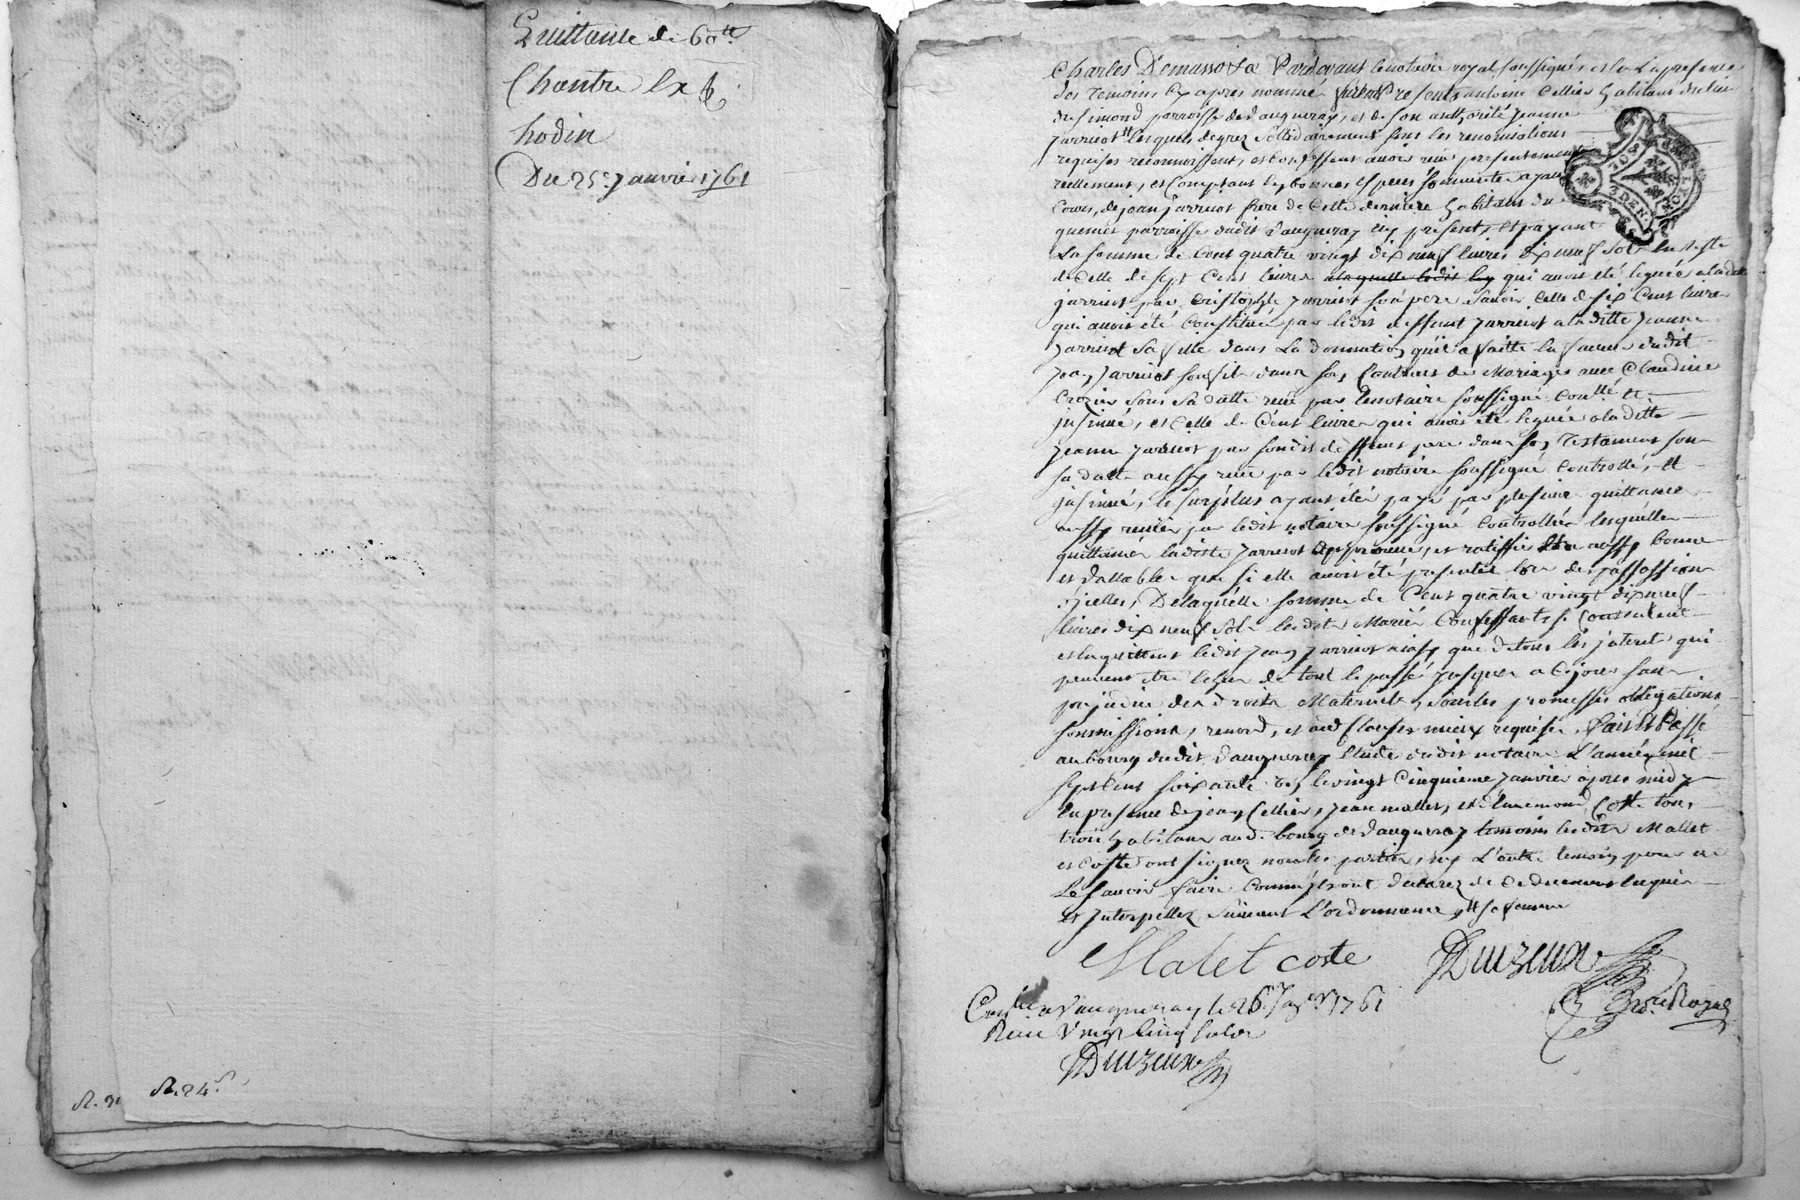 Quittance de 60ᵗᵗ
Chantre
hodin
Du 25ᵉ Janvier 1761
R. 24ˢ
Charles Demasso &a Pardevant le notaire royal soussigné et en la presence
des temoins cy apres nommé furent presents antoine Cellier habitant du lieu
du simond parroisse de Vaugneray, et de son authorité Jeanne
Jarricot lesquels de grez solidairement sous les renonciations
requises reconnoissent, et confessent avoir reçu presentement
reellement, et comptant en bonnes especes sonnantes ayant
cours, de jean Jarricot frere de cette derniere habitant du
parroisse dudit Vaugneray icy present, et payant
La somme de Cent quatre vingt dix neuf livres dix neuf sols en reste
de Celle de sept Cent livres a laquelle ledit qui avoit été leguée a ladite
jarricot par Cristophle Jarricot son pere Savoir Celle de six Cent livres
qui avoit été Constitué par ledit deffunt Jarricot a laditte Jeanne
Jarricot Sa fille dans La donnation qu'il a faitte en faveur dudit
Jean Jarricot son fils dans son Contract de Mariage avec Claudine
Crozier Sous Sa datte reçu par le notaire soussigné Contllé et
jnsinué, et Celle de Cent livres qui avoit été leguée a laditte
Jeanne Jarricot par sondit deffunt pere dans son Testament sous
sa datte aussy reçu par ledit notaire soussigné Controllé, et
jnsinué, le surplus ayant été payé par plusieurs quittances
aussy reçues par ledit notaire soussigné Controllées lesquelles
quittances laditte Jarricot approuve, et ratiffie aussy bonnes
et vallables que si elle avoit été presente lors des passassions
d'jcelles, De laquelle somme de Cent quatre vingt dix neuf
livres dix neuf sols lesdits Mariés Confessants se Contentent
et en quittent ledit Jean Jarricot ainsy que de tous les jnterets qui
peuvent etre echus de tout le passé jusques a ce jour sans
prejudice des droits Maternels, sous les promesses obligations
soumissions, renond, et aud Clauses mieux requises, Fait Et Passé
au bourg dudit Vaugneray Etude dudit notaire L'année mil
sept Cent soixante un le vingt Cinquieme Janvier apres midy
En presence de jean Cellier, Jean mallet, et Enemond Coste tous
trois habitans aud. bourg de Vaugneray temoins lesdits Mallet
et Coste ont signez non les parties, ny L'autre temoin pour ne
Le savoir faire Comme jls ont declarez de Ce duement enquis
et jnterpellez Suivant L'ordonnance
Malet coste
Contllé a Vaugneray le 26. Janvier 1761
Reçu Vingt Cinq sols